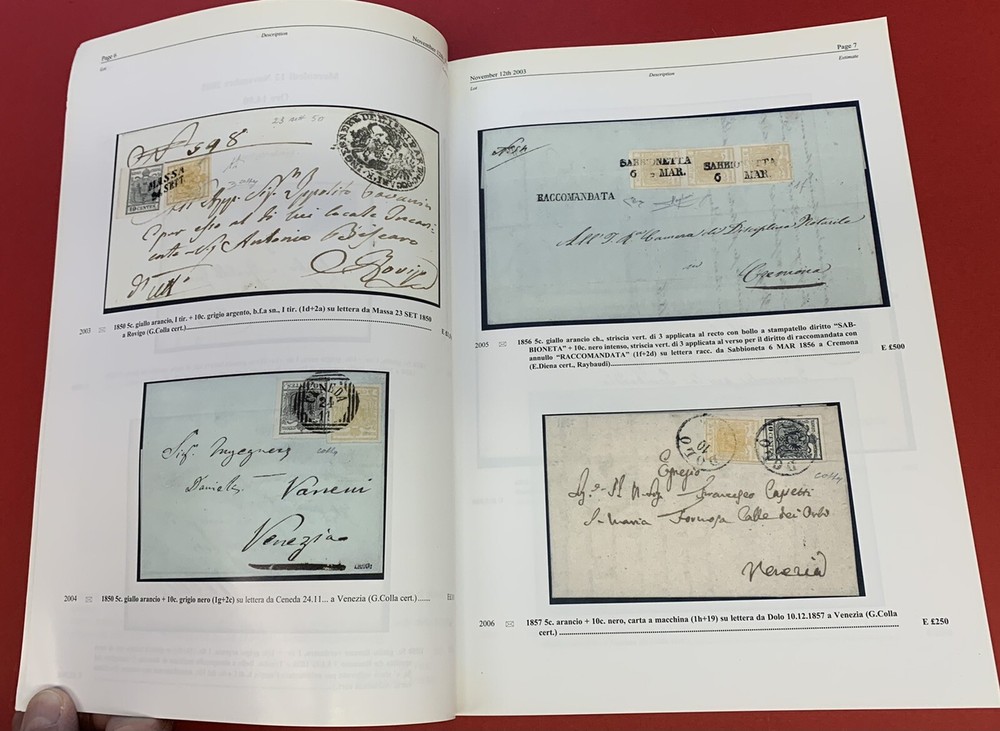 Page 6
Description
November 12th
Lot
No 598
23 SET 50
MASSA
SET
10 CENTES
Antonio
Rovigo
2003
1850 5c. giallo arancio, I tir. + 10c. grigio argento, b.f.a sn., I tir. (1d+2a) su lettera da Massa 23 SET 1850
a Rovigo (G.Colla cert.)
CENEDA
24
11
Colla
Sig. Ingegnere
Daniele
Venezia
2004
1850 5c. giallo arancio + 10c. grigio nero (1g+2c) su lettera da Ceneda 24.11... a Venezia (G.Colla cert.)
November 12th 2003
Page 7
Lot
Description
Estimate
SABBIONETTA
6 MAR.
SABBIONETTA
6 MAR.
RACCOMANDATA
Cremona
2005
1856 5c. giallo arancio ch., striscia vert. di 3 applicata al recto con bollo a stampatello diritto “SAB-
BIONETA” + 10c. nero intenso, striscia vert. di 3 applicata al verso per il diritto di raccomandata con
annullo “RACCOMANDATA” (1f+2d) su lettera racc. da Sabbioneta 6 MAR 1856 a Cremona
(E.Diena cert., Raybaudi)
E £500
DOLO
10
Colla
Egregio
Francesco
S. Maria Formosa Calle dei Orbi
Venezia
2006
1857 5c. arancio + 10c. nero, carta a macchina (1h+19) su lettera da Dolo 10.12.1857 a Venezia (G.Colla
cert.)
E £250